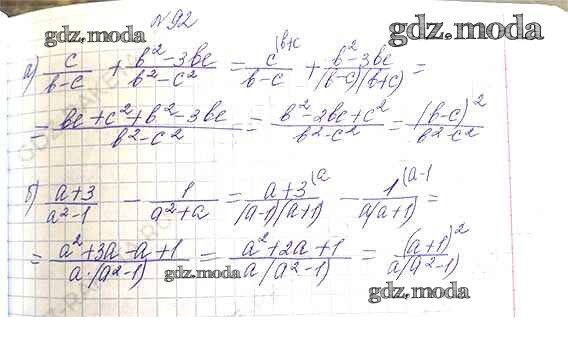 №92
gdz.moda
gdz.moda
а) c/(в-c) + (в²-3вc)/(в²-c²) = c^(в+c/(в-c) + (в²-3вc)/((в-c)(в+c)) =
= (вc+c²+в²-3вc)/(в²-c²) = (в²-2вc+c²)/(в²-c²) = (в-c)²/(в²-c²)
б) (a+3)/(a²-1) - 1/(a²+a) = (a+3)^(a/((a-1)(a+1)) - 1^(a-1/(a(a+1)) =
= (a²+3a-a+1)/(a·(a²-1)) = (a²+2a+1)/(a(a²-1)) = (a+1)²/(a(a²-1))
gdz.moda
gdz.moda